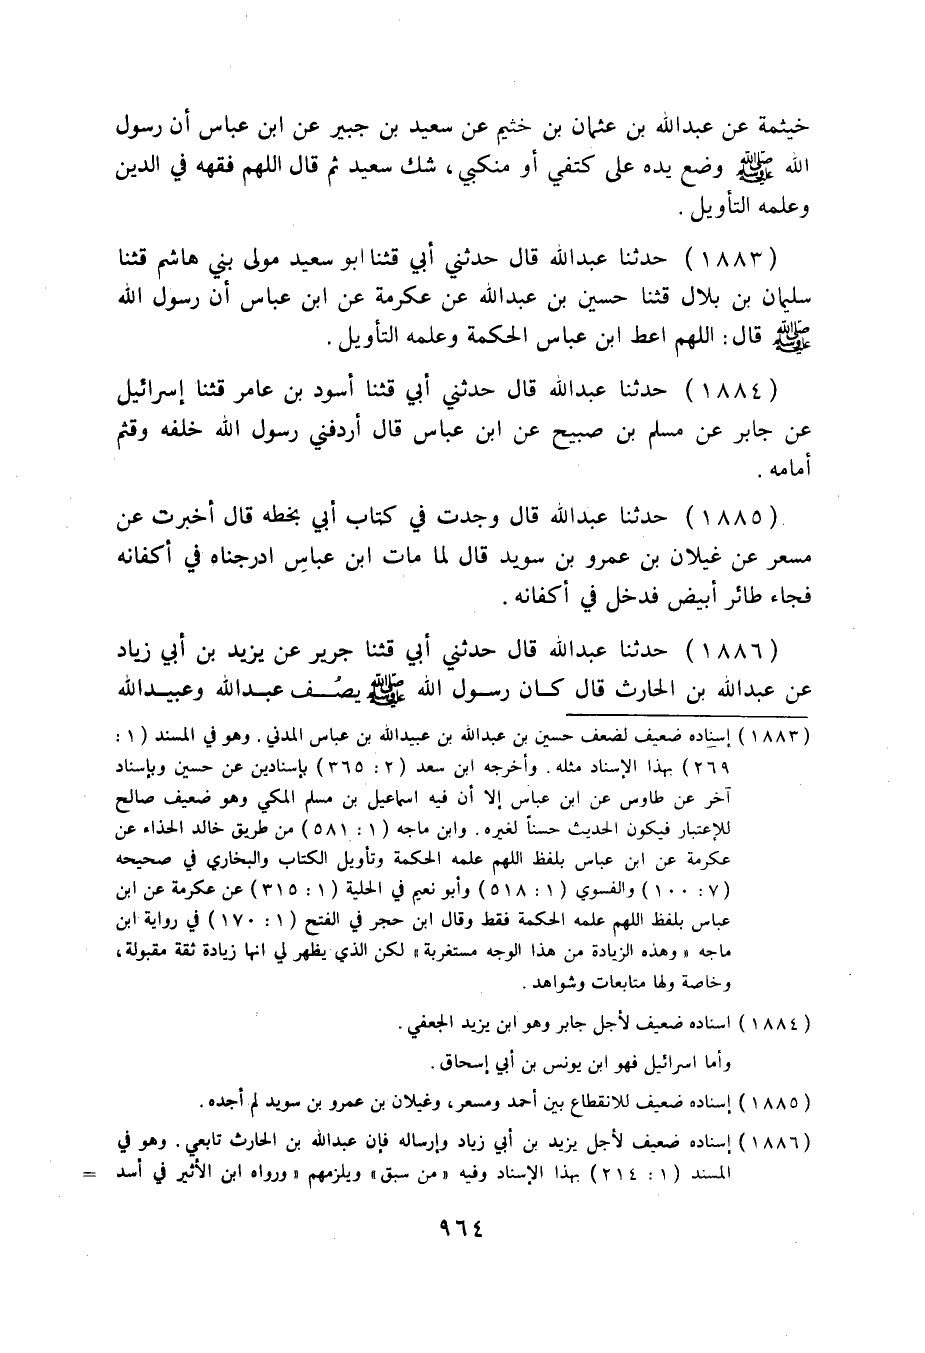 خيثمة عن عبدالله بن عثمان بن خثيم عن سعيد بن جبير عن ابن عباس أن رسول
الله ﷺ وضع يده على كتفي أو منكبي ، شك سعيد ثم قال اللهم فقهه في الدين
وعلمه التأويل .
(١٨٨٣) حدثنا عبدالله قال حدثني أبي قثنا ابو سعيد مولى بني هاشم قثنا
سليمان بن بلال قثنا حسين بن عبدالله عن عكرمة عن ابن عباس أن رسول الله
ﷺ قال : اللهم اعط ابن عباس الحكمة وعلمه التأويل .
(١٨٨٤) حدثنا عبدالله قال حدثني أبي قثنا أسود بن عامر قثنا إسرائيل
عن جابر عن مسلم بن صبيح عن ابن عباس قال أردفني رسول الله خلفه وقثم
أمامه .
(١٨٨٥) حدثنا عبدالله قال وجدت في كتاب أبي بخطه قال أخبرت عن
مسعر عن غيلان بن عمرو بن سويد قال لما مات ابن عباس ادرجناه في أكفانه
فجاء طائر أبيض فدخل في أكفانه .
(١٨٨٦) حدثنا عبدالله قال حدثني أبي قثنا جرير عن يزيد بن أبي زياد
عن عبدالله بن الحارث قال كان رسول الله ﷺ يصُف عبدالله وعبيدالله
(١٨٨٣) إسناده ضعيف لضعف حسين بن عبدالله بن عبيدالله بن عباس المدني . وهو في المسند (١ :
٢٦٩) بهذا الإسناد مثله . وأخرجه ابن سعد (٢ : ٣٦٥) بإسنادين عن حسين وبإسناد
آخر عن طاوس عن ابن عباس إلا أن فيه اسماعيل بن مسلم المكي وهو ضعيف صالح
للإعتبار فيكون الحديث حسناً لغيره . وابن ماجه (١ : ٥٨١) من طريق خالد الحذاء عن
عكرمة عن ابن عباس بلفظ اللهم علمه الحكمة وتأويل الكتاب والبخاري في صحيحه
(٧ : ١٠٠) والفسوي (١ : ٥١٨) وأبو نعيم في الحلية (١ : ٣١٥) عن عكرمة عن ابن
عباس بلفظ اللهم علمه الحكمة فقط وقال ابن حجر في الفتح (١ : ١٧٠) في رواية ابن
ماجه « وهذه الزيادة من هذا الوجه مستغربة » لكن الذي يظهر لي انها زيادة ثقة مقبولة ،
وخاصة ولها متابعات وشواهد .
(١٨٨٤) اسناده ضعيف لأجل جابر وهو ابن يزيد الجعفي .
وأما اسرائيل فهو ابن يونس بن أبي إسحاق .
(١٨٨٥) إسناده ضعيف للانقطاع بين أحمد ومسعر ، وغيلان بن عمرو بن سويد لم أجده .
(١٨٨٦) إسناده ضعيف لأجل يزيد بن أبي زياد وإرساله فإن عبدالله بن الحارث تابعي . وهو في
المسند (١ : ٢١٤) بهذا الإسناد وفيه « من سبق » ويلزمهم « ورواه ابن الأثير في أسد =
٩٦٤